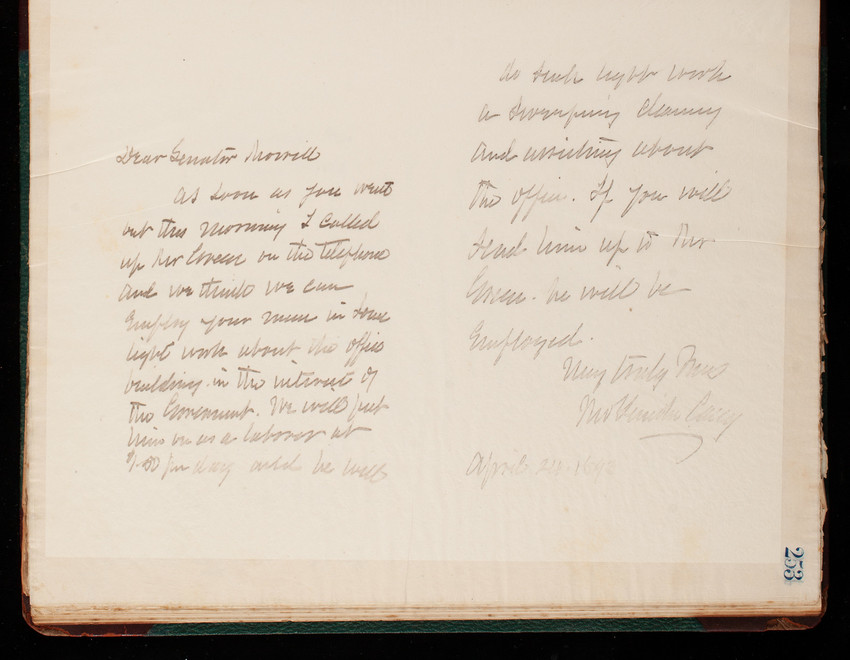 Dear Senator Morrill
As soon as you went
out this morning I called
up Mr Green on the Telephone
and we think we can
Employ your man in some
light work about the office
building in the interest of
the Government. We will put
him on as a laborer at
$1.50 per day and he will
do such light work
as sweeping cleaning
and assisting about
the office. If you will
send him up to Mr
Green. he will be
Employed.
Very truly Yours
Thos Lincoln Casey
April 189
253